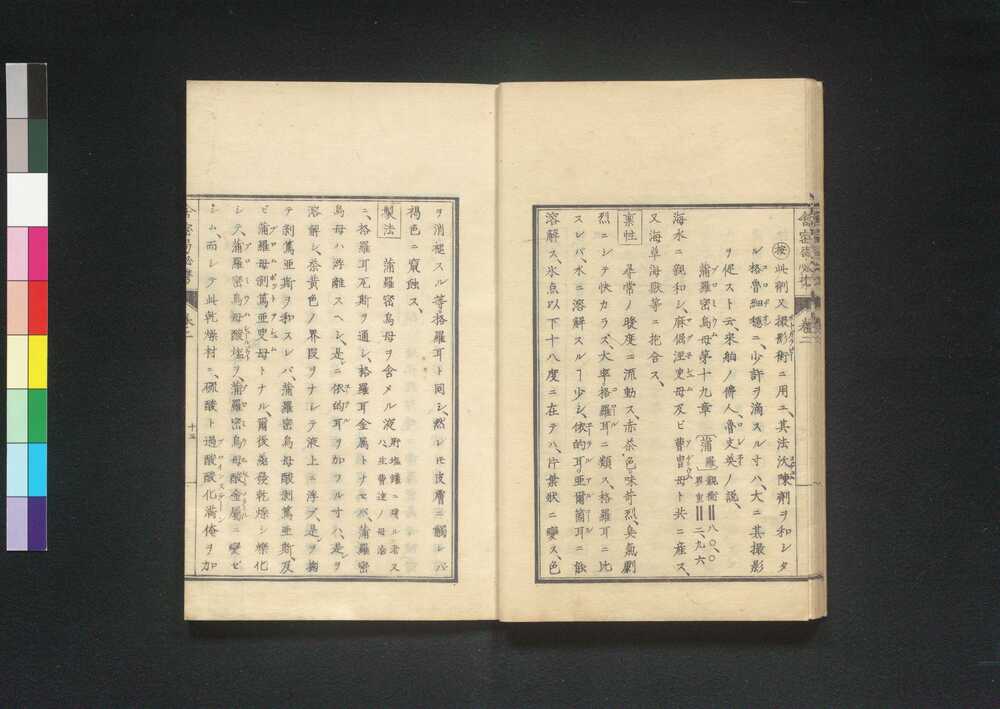 按 此剤又撮影術ニ用ユ、其法沃陳剤ヲ和シタ
ル格魯細穏ニ、少許ヲ滴スル寸ハ、大ニ其撮影
ヲ促スト云、来舶ノ儕人魯支英ノ説、
蒲羅密烏母第十九章 蒲羅 親衡‖八〇、〇 異重‖二、九六
海水ニ親和シ、麻倔涅叟母及ビ曹冑母ト共ニ産ス、
又海草海獣等ニ抱合ス、
稟性 尋常ノ暖度ニ流動ス、赤茶色、味苛烈、臭氣劇
烈ニシテ快カラズ、大率格羅耳ニ類ス、格羅耳ニ比
スレバ、水ニ溶解スルヿ少シ、依的耳亜爾箇耳ニ能
溶解ス、氷点以下十八度ニ在テハ、片葉状ニ変ス、色
ヲ消褪スル等、格羅耳ト同シ、然レモ皮膚ニ觸レバ
褐色ニ腐蝕ス、
製法 蒲羅密烏母ヲ含メル液 貯塩鑵ニ残ル者又ハ生曹達ノ母液
ニ、格羅耳瓦斯ヲ通シ、格羅耳金属トナセバ、蒲羅密
烏母ハ游離スヘシ、是ニ依的耳ヲ加フル寸ハ、是ヲ
溶解シ、柰黄色ノ界段ヲナシテ液上ニ浮ブ、是ヲ掬
テ剥篤亜斯ヲ和スレバ、蒲羅密烏母酸剥篤亜斯、及
ビ蒲羅母剥篤亜叟母トナル、爾後蒸侵乾燥シ爍化
シテ、蒲羅密烏母酸塩ヲ、蒲羅密烏母酸金属ニ変ゼ
シム、而シテ此乾燥材ニ、硫酸ト過酸酸化満俺ヲ加
巻二
十三